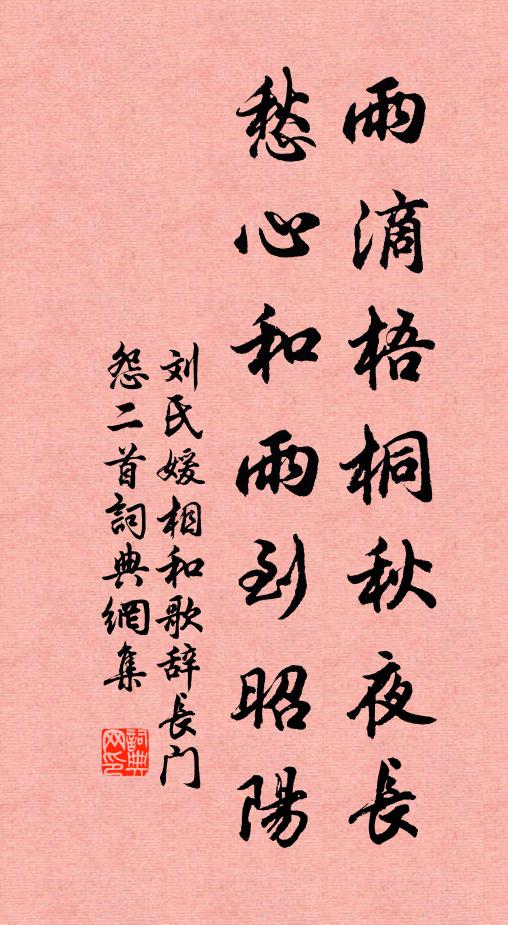 雨滴梧桐秋夜長
愁心和雨到昭陽
刘氏媛相和歌辞長门
怨二首詞典網集
詞典网印